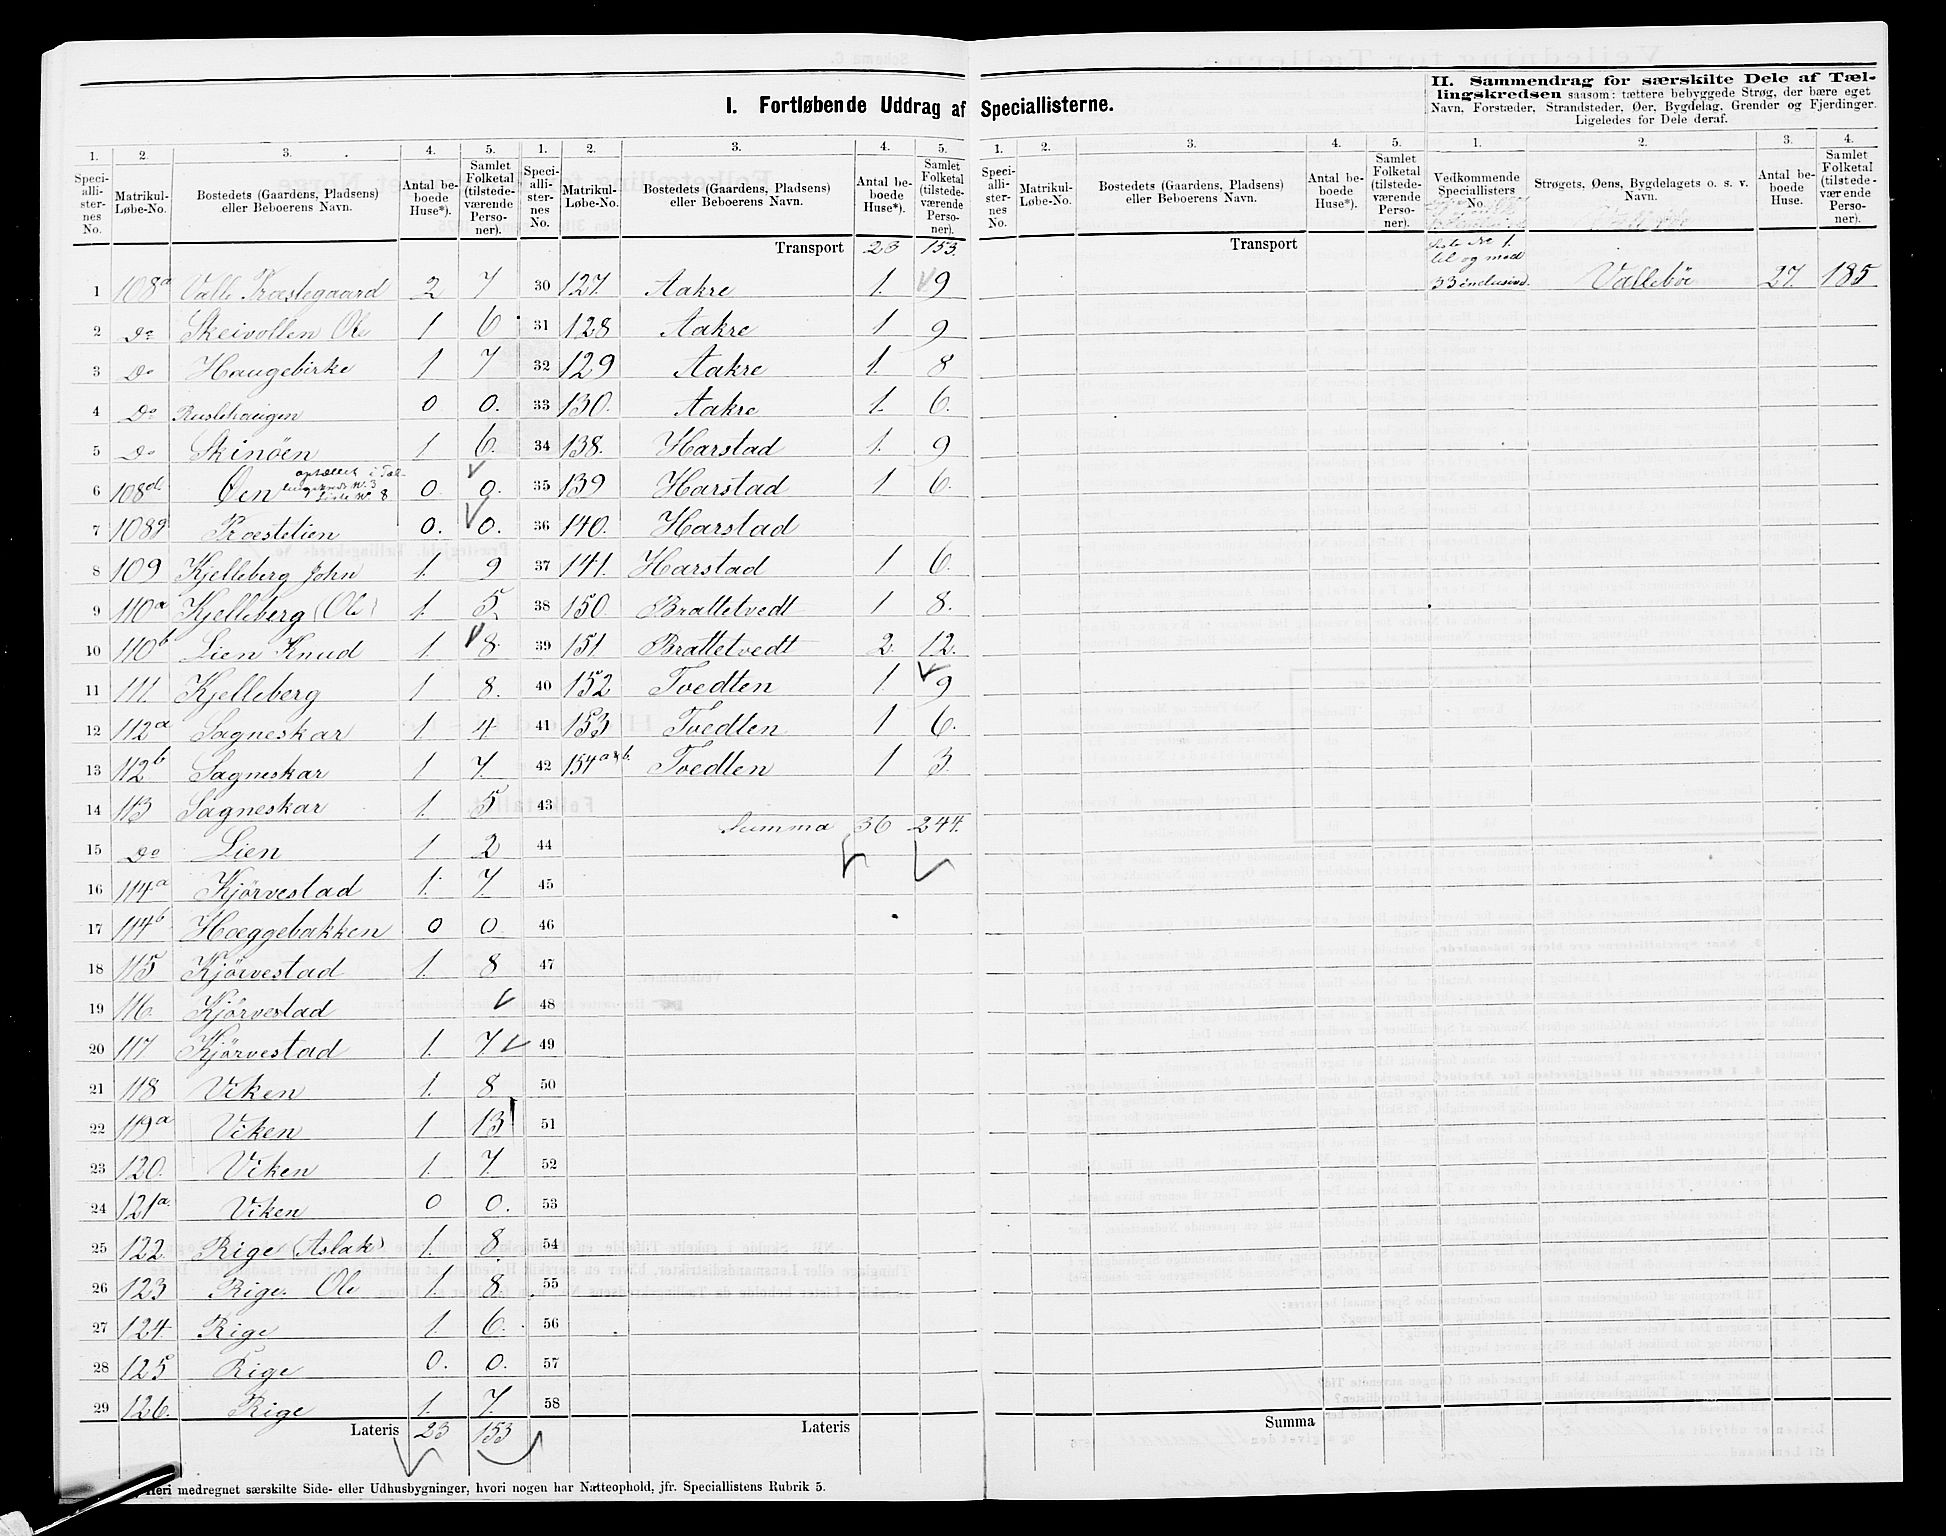 I. Fortløbende Uddrag af Speciallisterne.
II. Sammendrag for særskilte Dele af Tæl-
lingskredsen saasom: tættere bebyggede Strøg, der bære eget
Navn, Forstæder, Strandsteder, Øer, Bygdelag, Grender og Fjerdinger.
Ligeledes for Dele deraf.
1. 2. 3. 4. 5.
Speci-alli-ster-nes No. Matrikul-Løbe-No. Bostedets (Gaardens, Pladsens) eller Beboerens Navn. Antal be-boede Huse*). Samlet Folketal (tilstede-værende Perso-ner).
1 108a Valle Præstegaard 2 7
2 Do Skeivollen Ole 1 6
3 Do Haugebirke 1 7
4 Do Ruslehaugen 0 0.
5 Do Skinöen 1 6.
6 108d Øen optællet i Tæl-lingskreds No. 3 Liste No. 8 0 0.
7 108g Præstelien 0. 0.
8 109 Kjelleberg John 1. 9
9 110a Kjelleberg (Ole) 1. 5
10 110b Lien Knud 1 8.
11 111. Kjelleberg 1 8.
12 112a Sagneskar 1 4
13 112b Sagneskar 1 7.
14 113 Sagneskar 1. 5
15 Do Lien 1 2
16 114a Kjörvestad 1. 7.
17 114b Hæggebakken 0 0
18 115 Kjörvestad 1. 8
19 116. Kjörvestad
20 117. Kjörvestad 1. 7
21 118 Viken 1. 8
22 119a Viken 1 13
23 120. Viken 1. 7.
24 121a. Viken 0 0.
25 122. Rige (Aslak) 1. 8
26 123 Rige. Ole 1. 8.
27 124. Rige 1. 6.
28 125 Rige 0. 0.
29 126. Rige 1. 7.
Lateris 23 153
1. 2. 3. 4. 5.
Speci-alli-ster-nes No. Matrikul-Løbe-No. Bostedets (Gaardens, Pladsens) eller Beboerens Navn. Antal be-boede Huse*). Samlet Folketal (tilstede-værende Perso-ner).
Transport 23 153.
30 127. Aakre 1. 9
31 128 Aakre 1 9
32 129 Aakre 1. 8
33 130. Aakre 1. 6.
34 138. Harstad 1. 9
35 139 Harstad 1 6.
36 140. Harstad
37 141. Harstad 1 6.
38 150. Brattetvedt 1 8.
39 151 Brattetvedt 2. 12.
40 152 Tvedten 1. 9
41 153 Tvedten 1 6.
42 154a&b. Tvedten 1 3.
43
Summa 36 244.
44
45
46
47
48
49
50
51
52
53
54
55
56
57
58
Lateris
1. 2. 3. 4. 5.
Speci-alli-ster-nes No. Matrikul-Løbe-No. Bostedets (Gaardens, Pladsens) eller Beboerens Navn. Antal be-boede Huse*). Samlet Folketal (tilstede-værende Perso-ner).
Transport
Summa
1. 2. 3. 4.
Vedkommende Speciallisters No. Strøgets, Øens, Bygdelagets o. s. v. Navn. Antal be-boede Huse. Samlet Folketal (tilstede-værende Perso-ner).
Liste No 1.
til og med
33 inclusive. Vallebö 27. 185
Heri medregnet særskilte Side- eller Udhusbygninger, hvori nogen har Natteophold, jfr. Speciallistens Rubrik 5.